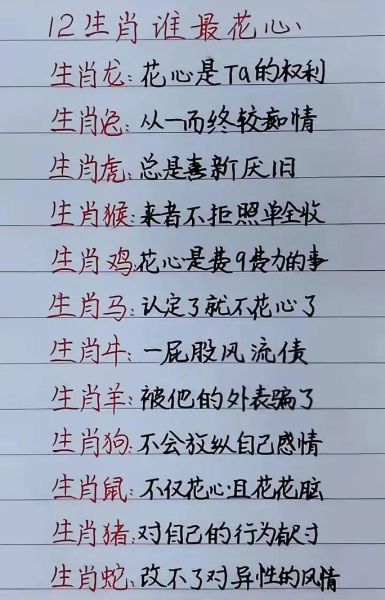 12生肖谁最花心
生肖龙:花心是Ta的权利
生肖兔:从一而终较痴情
生肖虎:总是喜新厌旧
生肖猴:来者不拒照单全收
生肖鸡:花心是费9费力的事
生肖马:认定了就不花心了
生肖牛:一屁股风流债
生肖羊:被他的外表骗了
生肖狗:不会放纵自己感情
生肖鼠:不仅花心且花花肠
生肖猪:对自己的行为有尺寸
生肖蛇:改不了对异性的风情